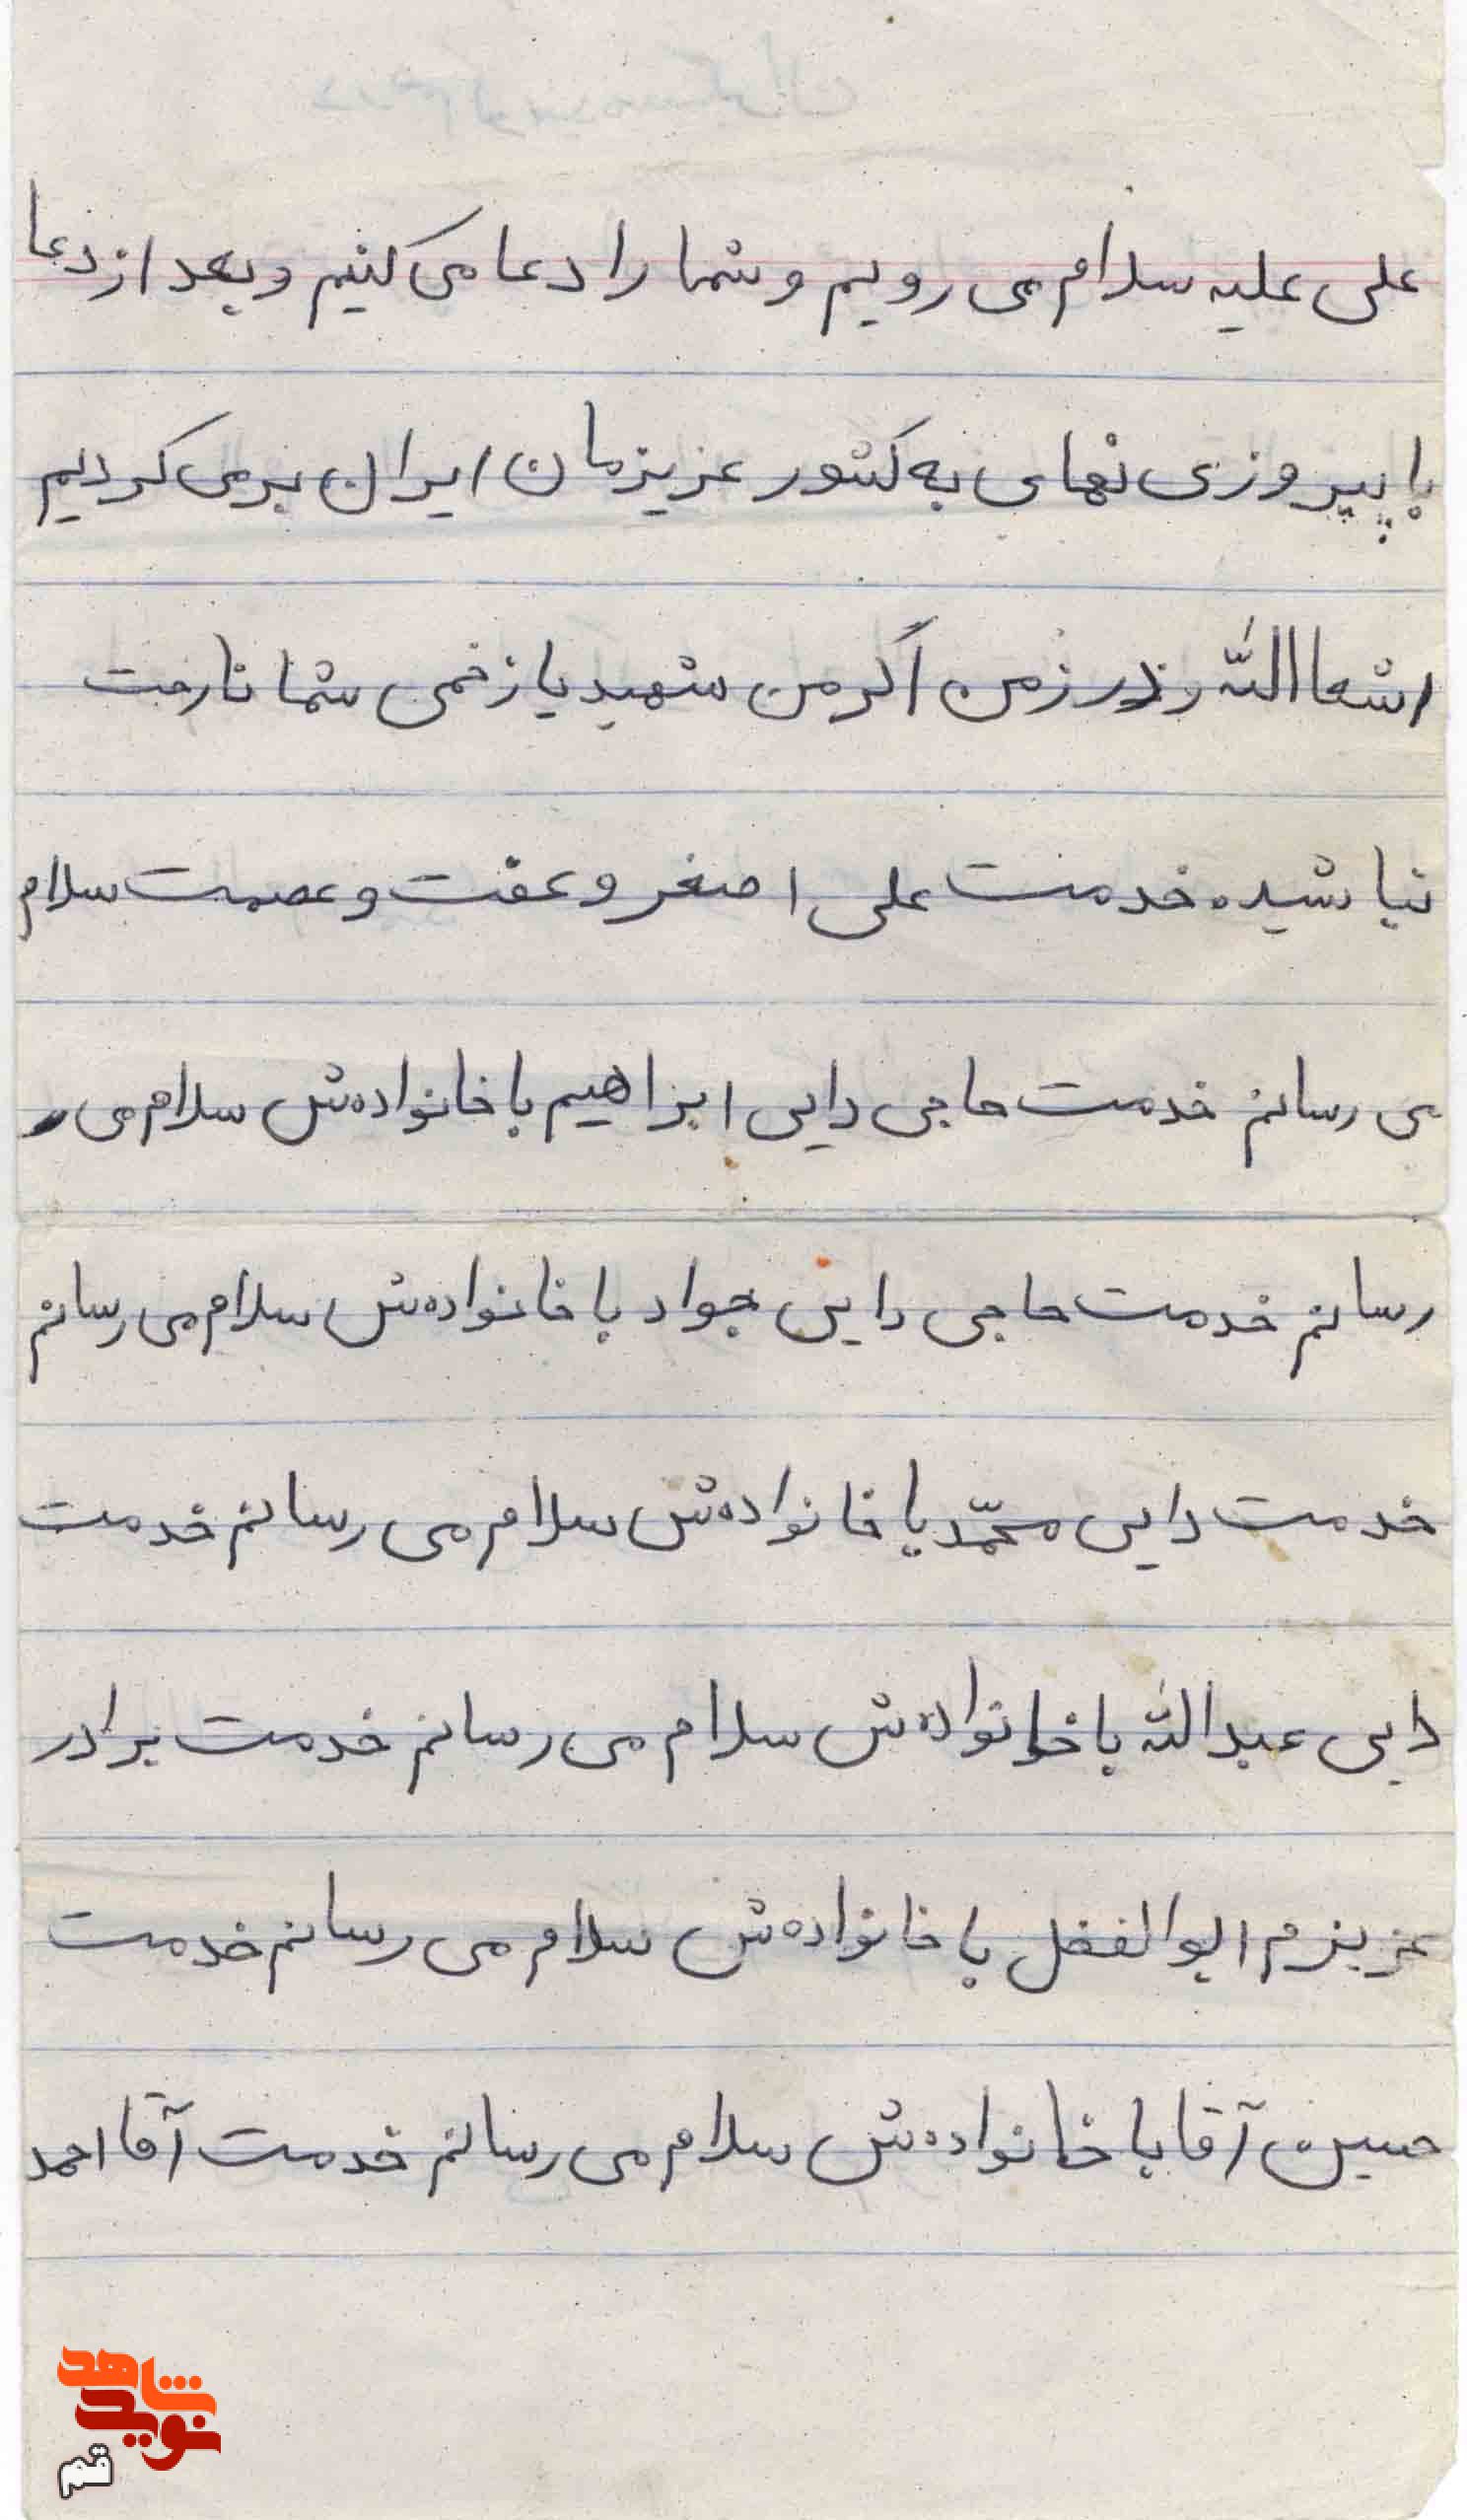 علی علیه سلام می رویم و شما را دعا می کنیم و بعد از دعا
با پیروزی نهای به کشور عزیزمان ایران برمی کردیم
اشعاالله در زمن اگر من شهید یا زخمی شما نارحت
نباشیده خدمت علی اصغر و عفت و عصمت سلام
می رسانم خدمت حاجی دایی ابراهیم با خانواده ش سلام می ر
رسانم خدمت حاجی دایی جواد با خانواده ش سلام می رسانم
خدمت دایی محمّد با خانواده ش سلام می رسانم خدمت
دایی عبدالله با خانواده ش سلام می رسانم خدمت برادر
عزیزم ابوالفضل با خانواده ش سلام می رسانم خدمت
حسین آقا با خانواده ش سلام می رسانم خدمت آقا احمد
شاهد
نوید
قم